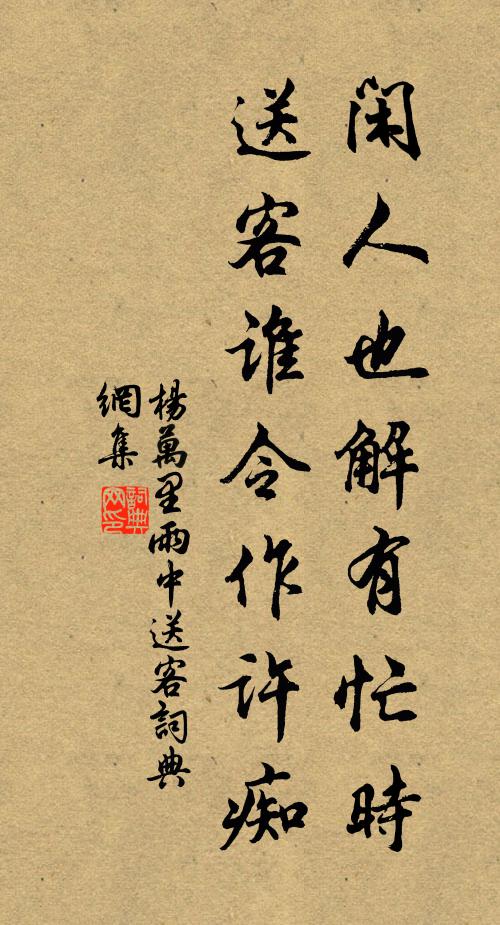 閑人也解有忙時
送客誰令作許痴
楊萬里雨中送客詞典
網集
詞典
网印